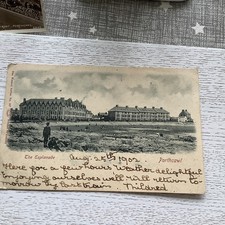 The Esplanade
Porthcawl
Aug. 25th 1902.
Here for a few hours Weather delightful
Enjoying ourselves well Will return to
morrow by last train Mildred